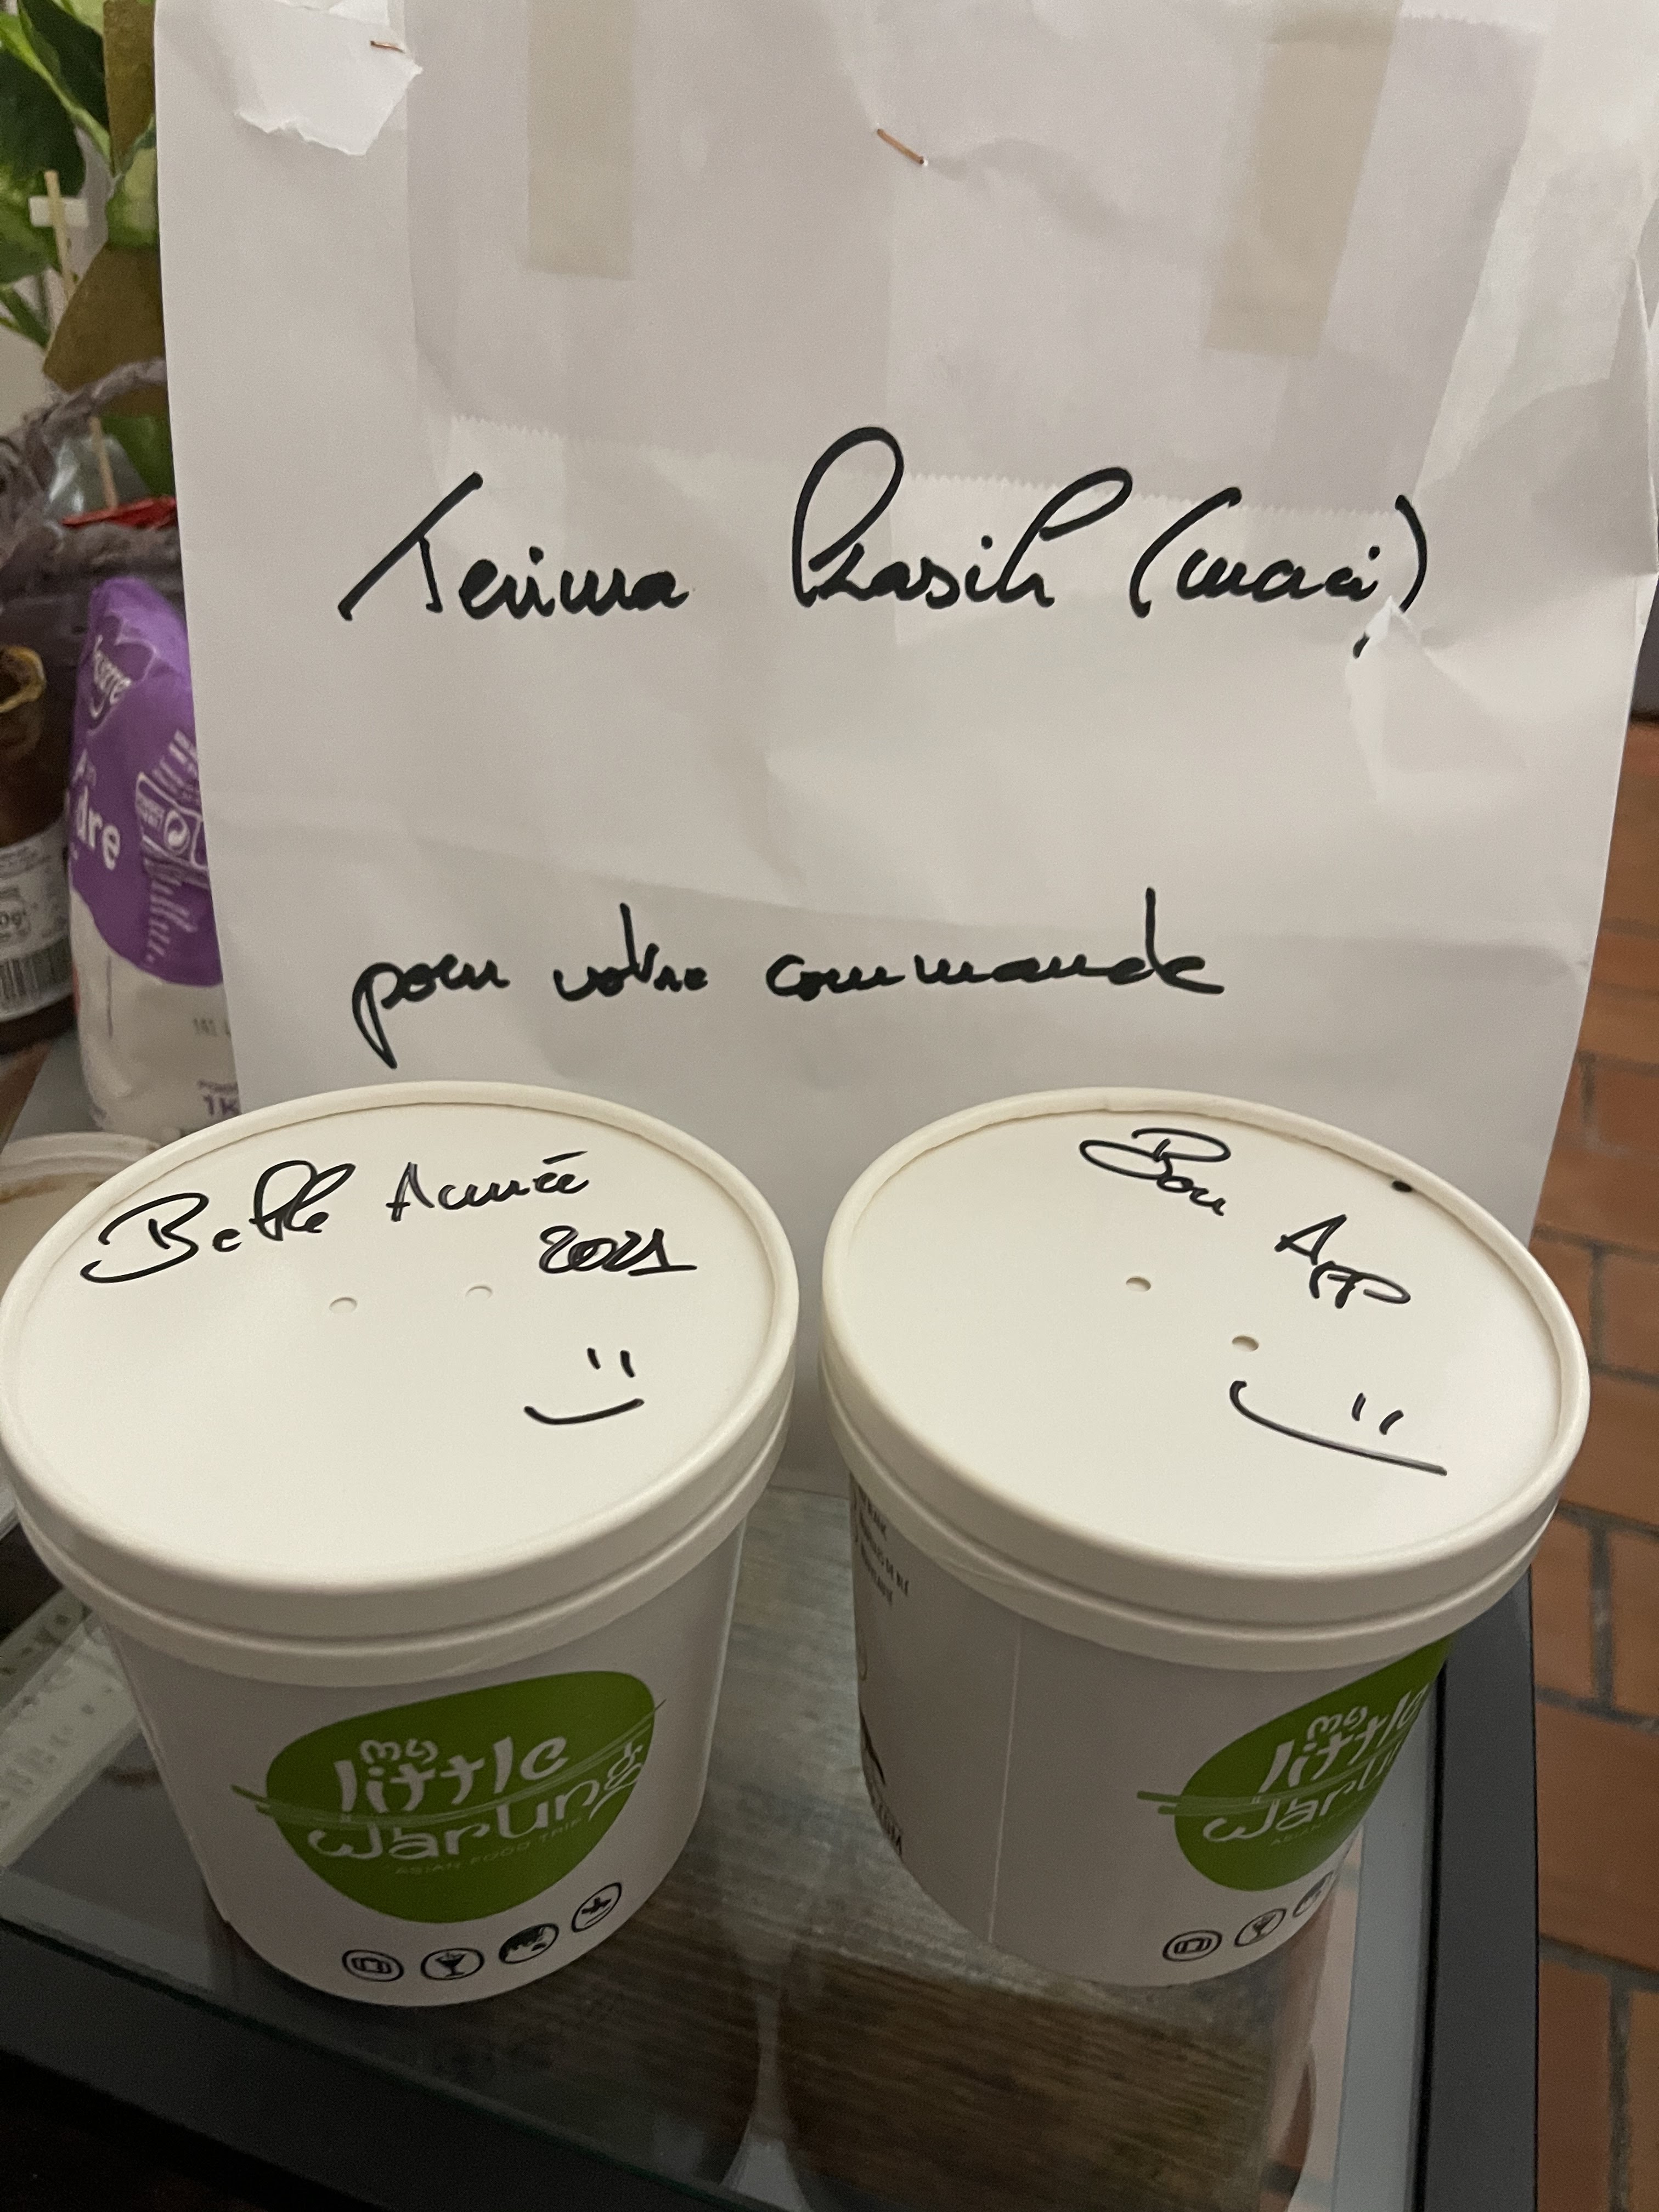 Terima Kasih (merci)
pour votre commande
Belle Année
2021
Bon
App
my
little
warung
ASIAN FOOD TRIP
my
little
dre
1K